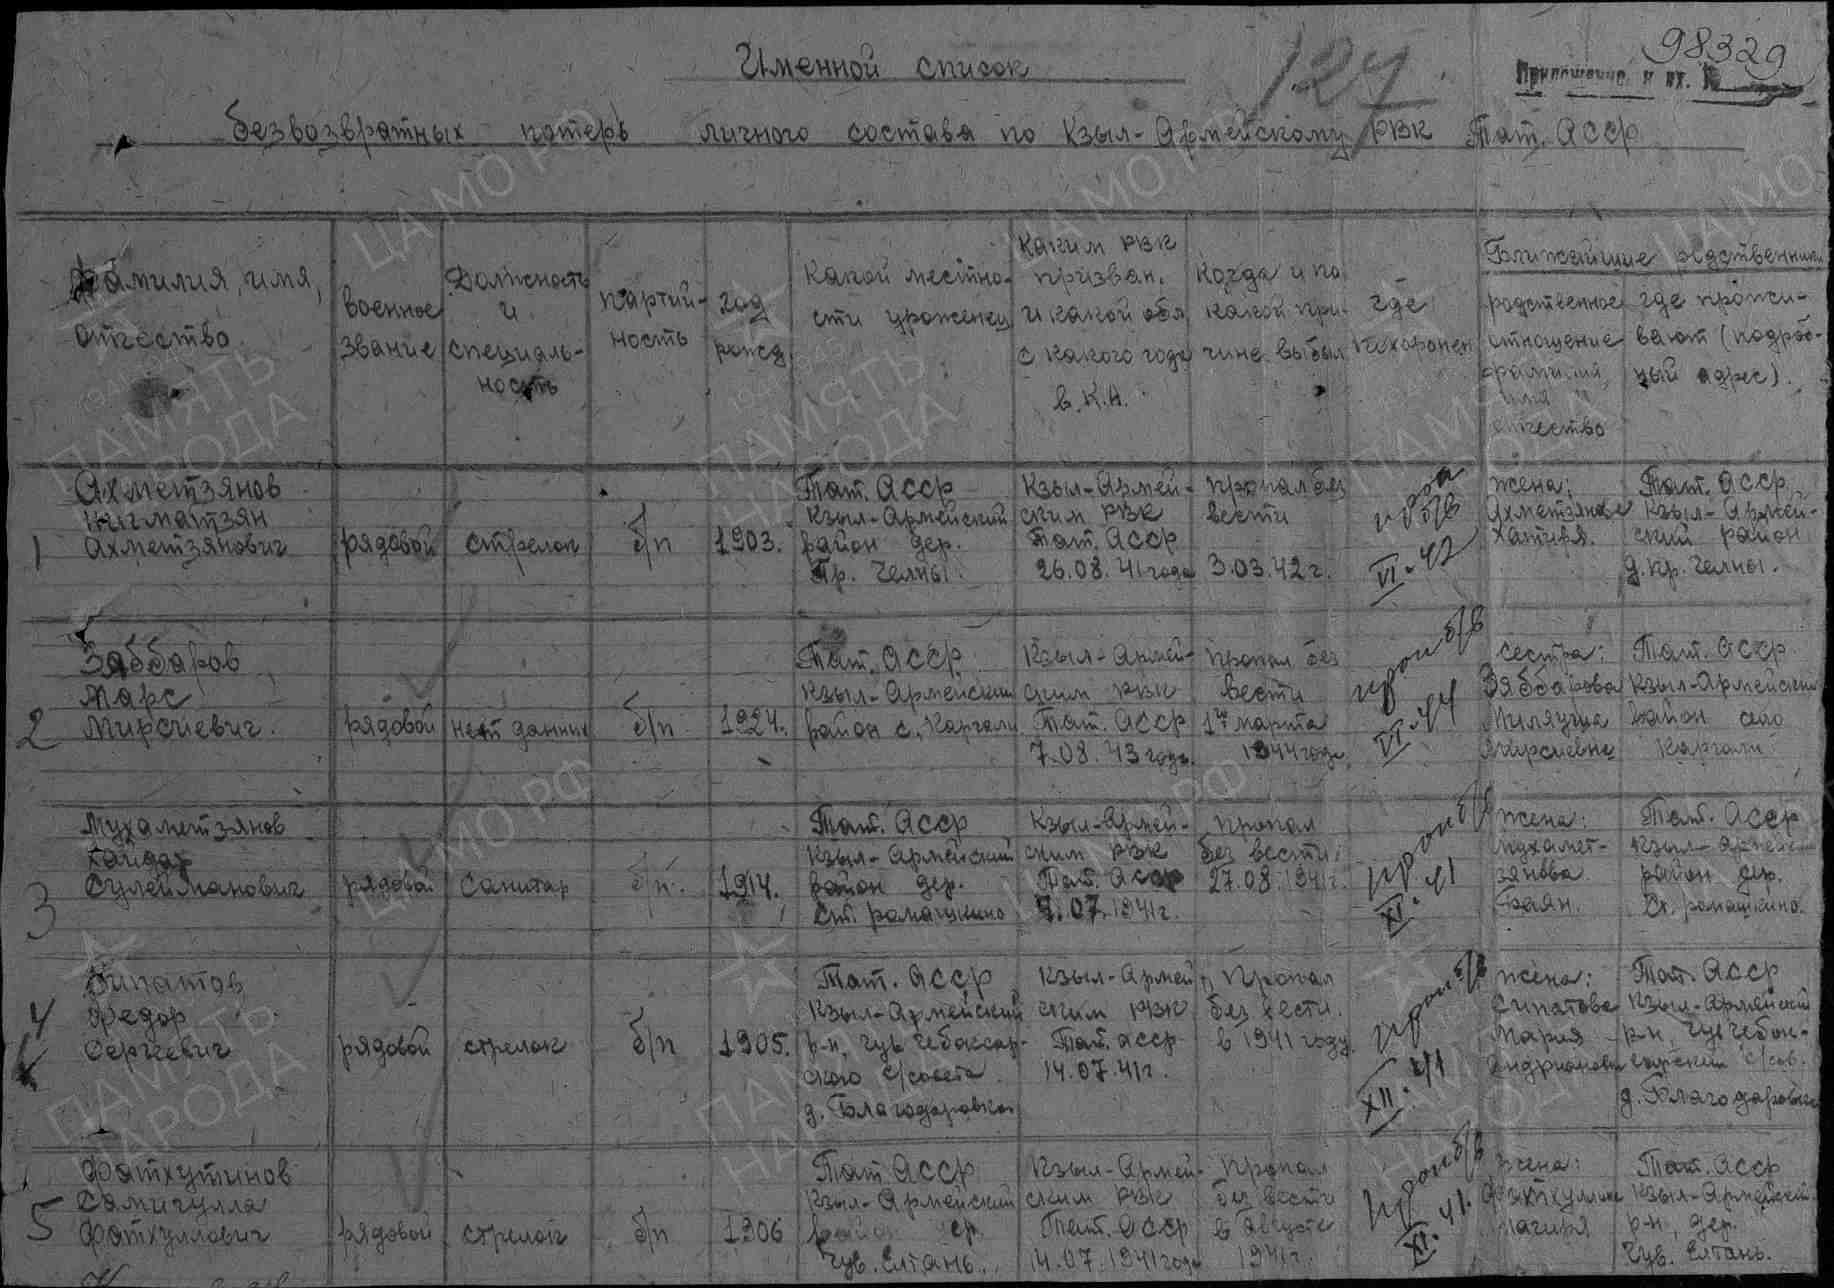 98329
Именной список
124
Приложение к вх. №
безвозвратных потерь личного состава по Кзыл-Армейскому РВК Тат. АССР
Фамилия, имя,
отчество
военное
звание
Должность
и
специаль-
ность
партий-
ность
год
рожд.
Какой местно-
сти уроженец
Каким РВК
призван.
и какой обл
с какого года
в К.А.
Когда и по
какой при-
чине выбыл
где
похоронен
Ближайшие родственники
родственное
отношение
фамилия,
имя
отчество
где прожи-
вают (подроб-
ный адрес).
1
Ахметзянов
Нигматзян
Ахметзянович
рядовой
стрелок
б/п
1903.
Тат. АССР
Кзыл-Армейский
район дер.
Челны.
Кзыл-Армей-
ским РВК
Тат. АССР
26.08.41 года
пропал без
вести
3.03.42 г.
б/в
VI-42
жена:
Тат. АССР
Кзыл-Армей-
ский район
д. Кр. Челны.
2
Заббаров
Марс
рядовой
нет данных
б/п
1924.
Тат. АССР
Кзыл-Армейский
район с. Каргали
Кзыл-Армей-
ским РВК
Тат. АССР
7.08.43 года
Пропал без
вести
марта
1944 года
проп б/в
VI-44
сестра:
Заббарова
Миляуша
Тат. АССР
Кзыл-Армейский
район село
Каргали
3
Мухаметзянов
Хайдар
Сулейманович
рядовой
санитар
б/п.
1914.
Тат. АССР
Кзыл-Армейский
район дер.
Ст. ромашкино
Кзыл-Армей-
ским РВК
Тат. АССР
07.1941г.
пропал
без вести
27.08.1941г.
проп б/в
XI-41
жена:
Мухамет-
зянова
Баян.
Тат. АССР
Кзыл-Армейский
район дер.
Ст. ромашкино.
4
Сипатов
Федор
Сергеевич
рядовой
стрелок
б/п
1905.
Тат. АССР
Кзыл-Армейский
р-н, Чув Чебоксар-
ского с/совета
д. Благодаровка
Кзыл-Армей
ским РВК
Тат. АССР
14.07.41г.
Пропал
без вести.
в 1941 году.
проп б/в
XII-41
жена:
Сипатова
Мария
Тат. АССР
Кзыл-Армейский
р-н, Чув Чебок-
сарский с/сов.
д. Благодаровка
5
Фатхутинов
Самигулла
Фатхуллович
рядовой
стрелок
б/п
1906
Тат. АССР
Кзыл-Армейский
район
Чув. Елтань.
Кзыл-Армей-
ским РВК
Тат. АССР
14.07.1941 года
Пропал
без вести
в августе
1941г.
проп б/в
XI-41.
жена:
Тат. АССР
Кзыл-Армейский
р-н, дер.
Чув. Елтань.
ЦАМО РФ
ПАМЯТЬ
НАРОДА